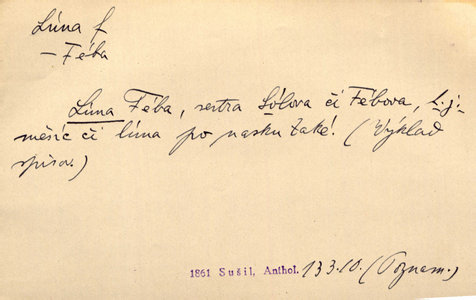 Lúna f
– Féba
Lúna Féba, sestra Sólova či Fébova, t. j.
měsíc či lúna po nasku také. (Výklad
spisov.)
1861 Sušil, Anthol. 133.10. (Poznam.)